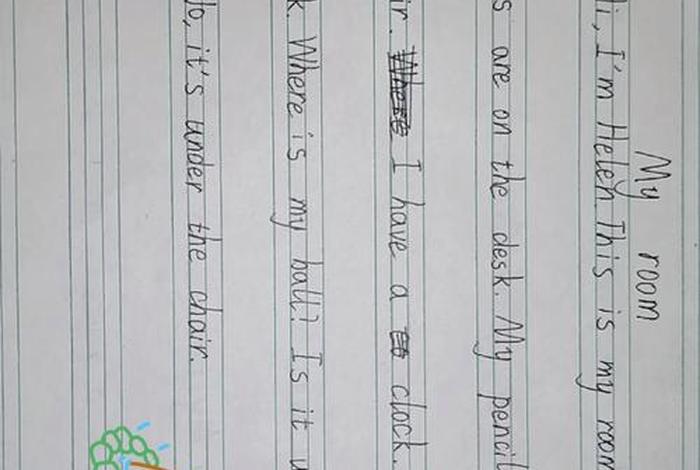 My room
i, I'm Helen. This is my room
s are on the desk. My pencil
ir. I have a clock.
k. Where is my ball? Is it u
o, it's under the chair.